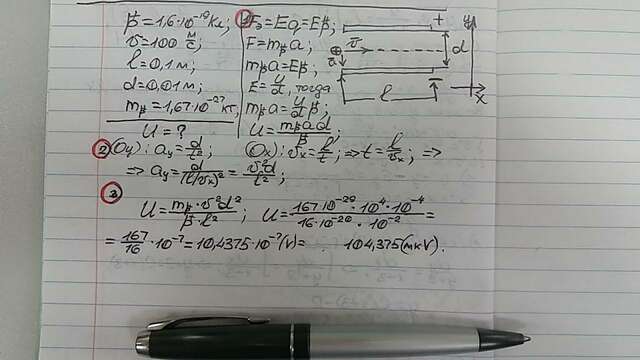 β = 1,6·10⁻¹⁹ Кл;
v = 100 м/с;
l = 0,1 м;
d = 0,01 м;
mβ = 1,67·10⁻²⁷ кг,
U = ?
1 Fэ = Eq = Eβ;
F = mβa;
mβa = Eβ;
E = U/d, тогда
mβa = U/d β;
U = mβad/β;
+
v
a
l
−
d
y
x
2 (Oy): ay = d/t²; (Ox): vx = l/t; => t = l/vx; =>
=> ay = d/(l/vx)² = v²d/l²;
3
U = mβ·v²d²/β·l²; U = 167·10⁻²⁹·10⁴·10⁻⁴/16·10⁻²⁰·10⁻² =
= 167/16·10⁻⁷ = 10,4375·10⁻⁷(V) = 104,375(мкV).